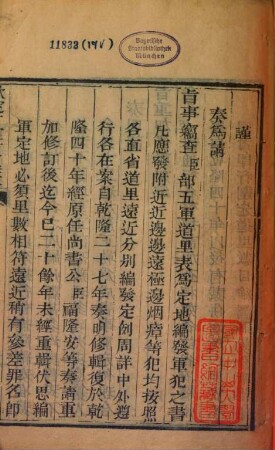 11832 (IV)
Bayerische
Staatsbibliothek
München
謹
奏為請
旨事竊查臣部五軍道里表為定地編發軍犯之書
凡應發附近近邊邊遠極邊烟瘴等犯均按照
各直省道里遠近分別編發定例周詳中外遵
行各在案自乾隆二十七年奏明修輯復於乾
隆四十年經原任尚書公臣福隆安等奏請重
加修訂後迄今已二十餘年未經重輯伏思編
軍定地必須里數相符遠近稍有參差罪名即